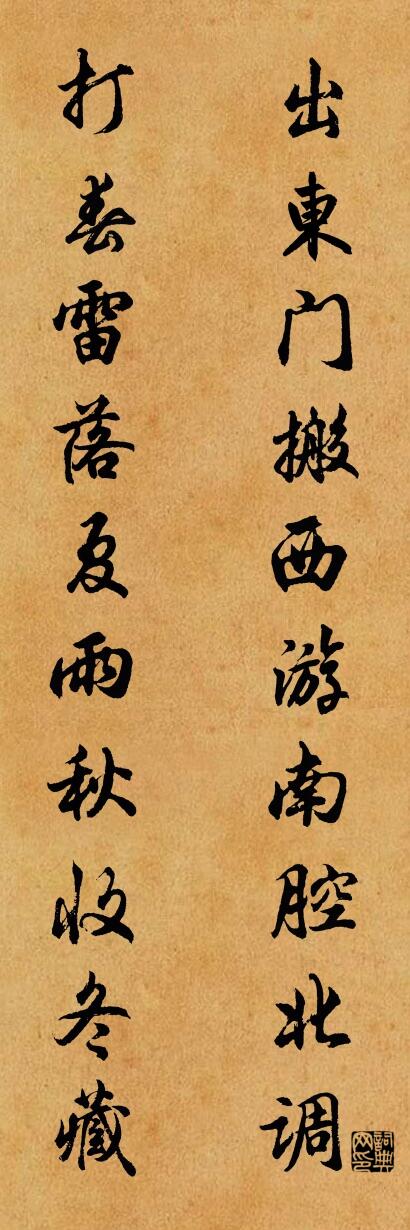 出東门搬西游南腔北调
打春雷落夏雨秋收冬藏
詞典网印